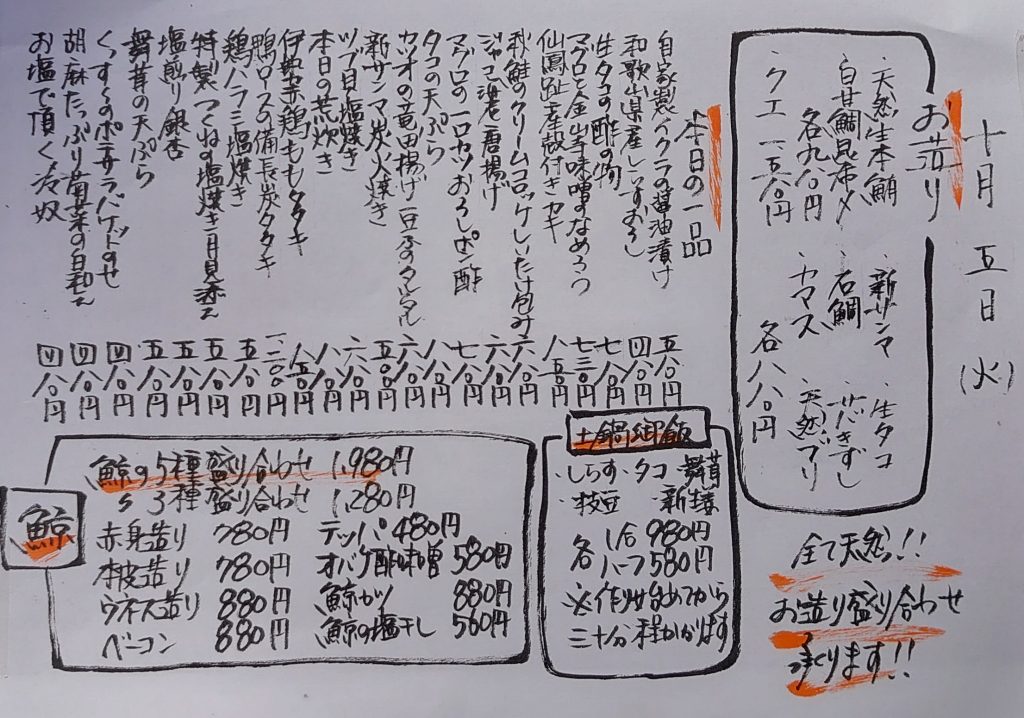 十月五日(火)
お造り
・天然生本鮪 ・新サンマ ・生タコ
・白甘鯛昆布〆 ・石鯛 ・サバきずし
各九八〇円 ・カマス ・天然ブリ
・クエ 一五八〇円 各八八〇円
全て天然!!
お造り盛り合わせ
承ります!!
本日の一品
自家製イクラの醤油漬け 五八〇円
和歌山県産しらすおろし 四八〇円
生タコの酢の物 七八〇円
マグロと金山寺味噌のなめろう 七三〇円
仙鳳趾産殻付きカキ 八五〇円
ジャコ海老唐揚げ 六八〇円
秋鮭のクリームコロッケしいたけ包み 六八〇円
マグロの一口カツおろしポン酢 七八〇円
タコの天ぷら 八八〇円
カツオの竜田揚げ 豆腐のタルタル 六八〇円
新サンマ炭火焼き 五八〇円
ツブ貝塩焼き 六八〇円
本日の荒炊き 八八〇円
伊勢赤鶏ももタタキ 八五〇円
鴨ロースの備長炭タタキ 一、二〇〇円
鶏ハラミ塩焼き 五八〇円
特製つくねの塩焼き 月見添え 五八〇円
塩煎り銀杏 五八〇円
舞茸の天ぷら 五八〇円
くんすくのポテサラバケットのせ 四八〇円
胡麻たっぷり菊菜の白和え 四八〇円
お塩で頂く冷奴 四八〇円
土鍋御飯
・しらす ・タコ ・舞茸
・枝豆 ・新生姜
各 1合 980円
ハーフ 580円
※作り始めてから
三十分程かかります
鯨
鯨の5種盛り合わせ 1,980円
〃 3種盛り合わせ 1,280円
赤身造り 780円 テッパ 480円
本皮造り 780円 オバケ酢味噌 580円
ウネス造り 880円 鯨カツ 880円
ベーコン 880円 鯨の塩干し 560円